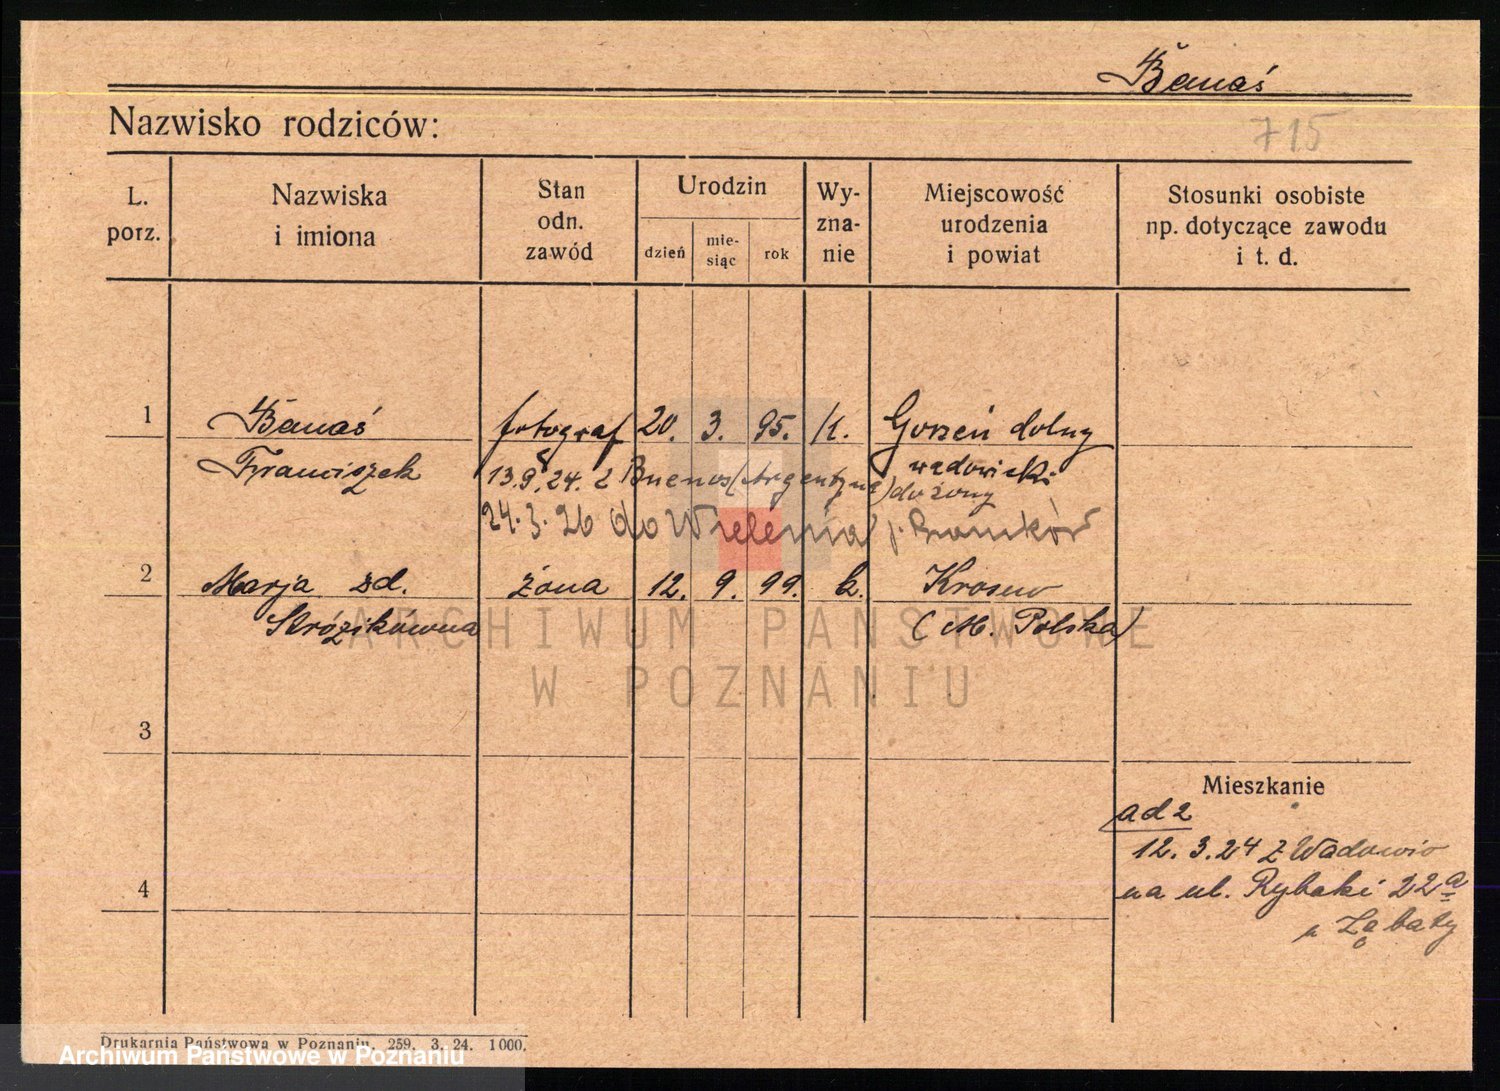 Banaś
Nazwisko rodziców:
715
L. porz.
Nazwiska i imiona
Stan odn. zawód
Urodzin
dzień
mie-
siąc
rok
Wy-
zna-
nie
Miejscowość urodzenia i powiat
Stosunki osobiste
np. dotyczące zawodu
i t. d.
1 Banaś fotograf 20. 3. 95. k. Gorzeń dolny
Franciszek wadowicki
13.9.24. z Buenos (Argentyna) do żony
24.3.26 do Wielenia p.
2 Marja zd. żona 12. 9. 99. k. Krosno
Stróżikówna (M. Polska)
ARCHIWUM PAŃSTWOWE
W POZNANIU
3
Mieszkanie
ad 2
12.3.24 z Wadowic
4
na ul. Rybaki 22a
u Ząbaty
Drukarnia Państwowa w Poznaniu. 259. 3. 24. 1000.
Archiwum Państwowe w Poznaniu